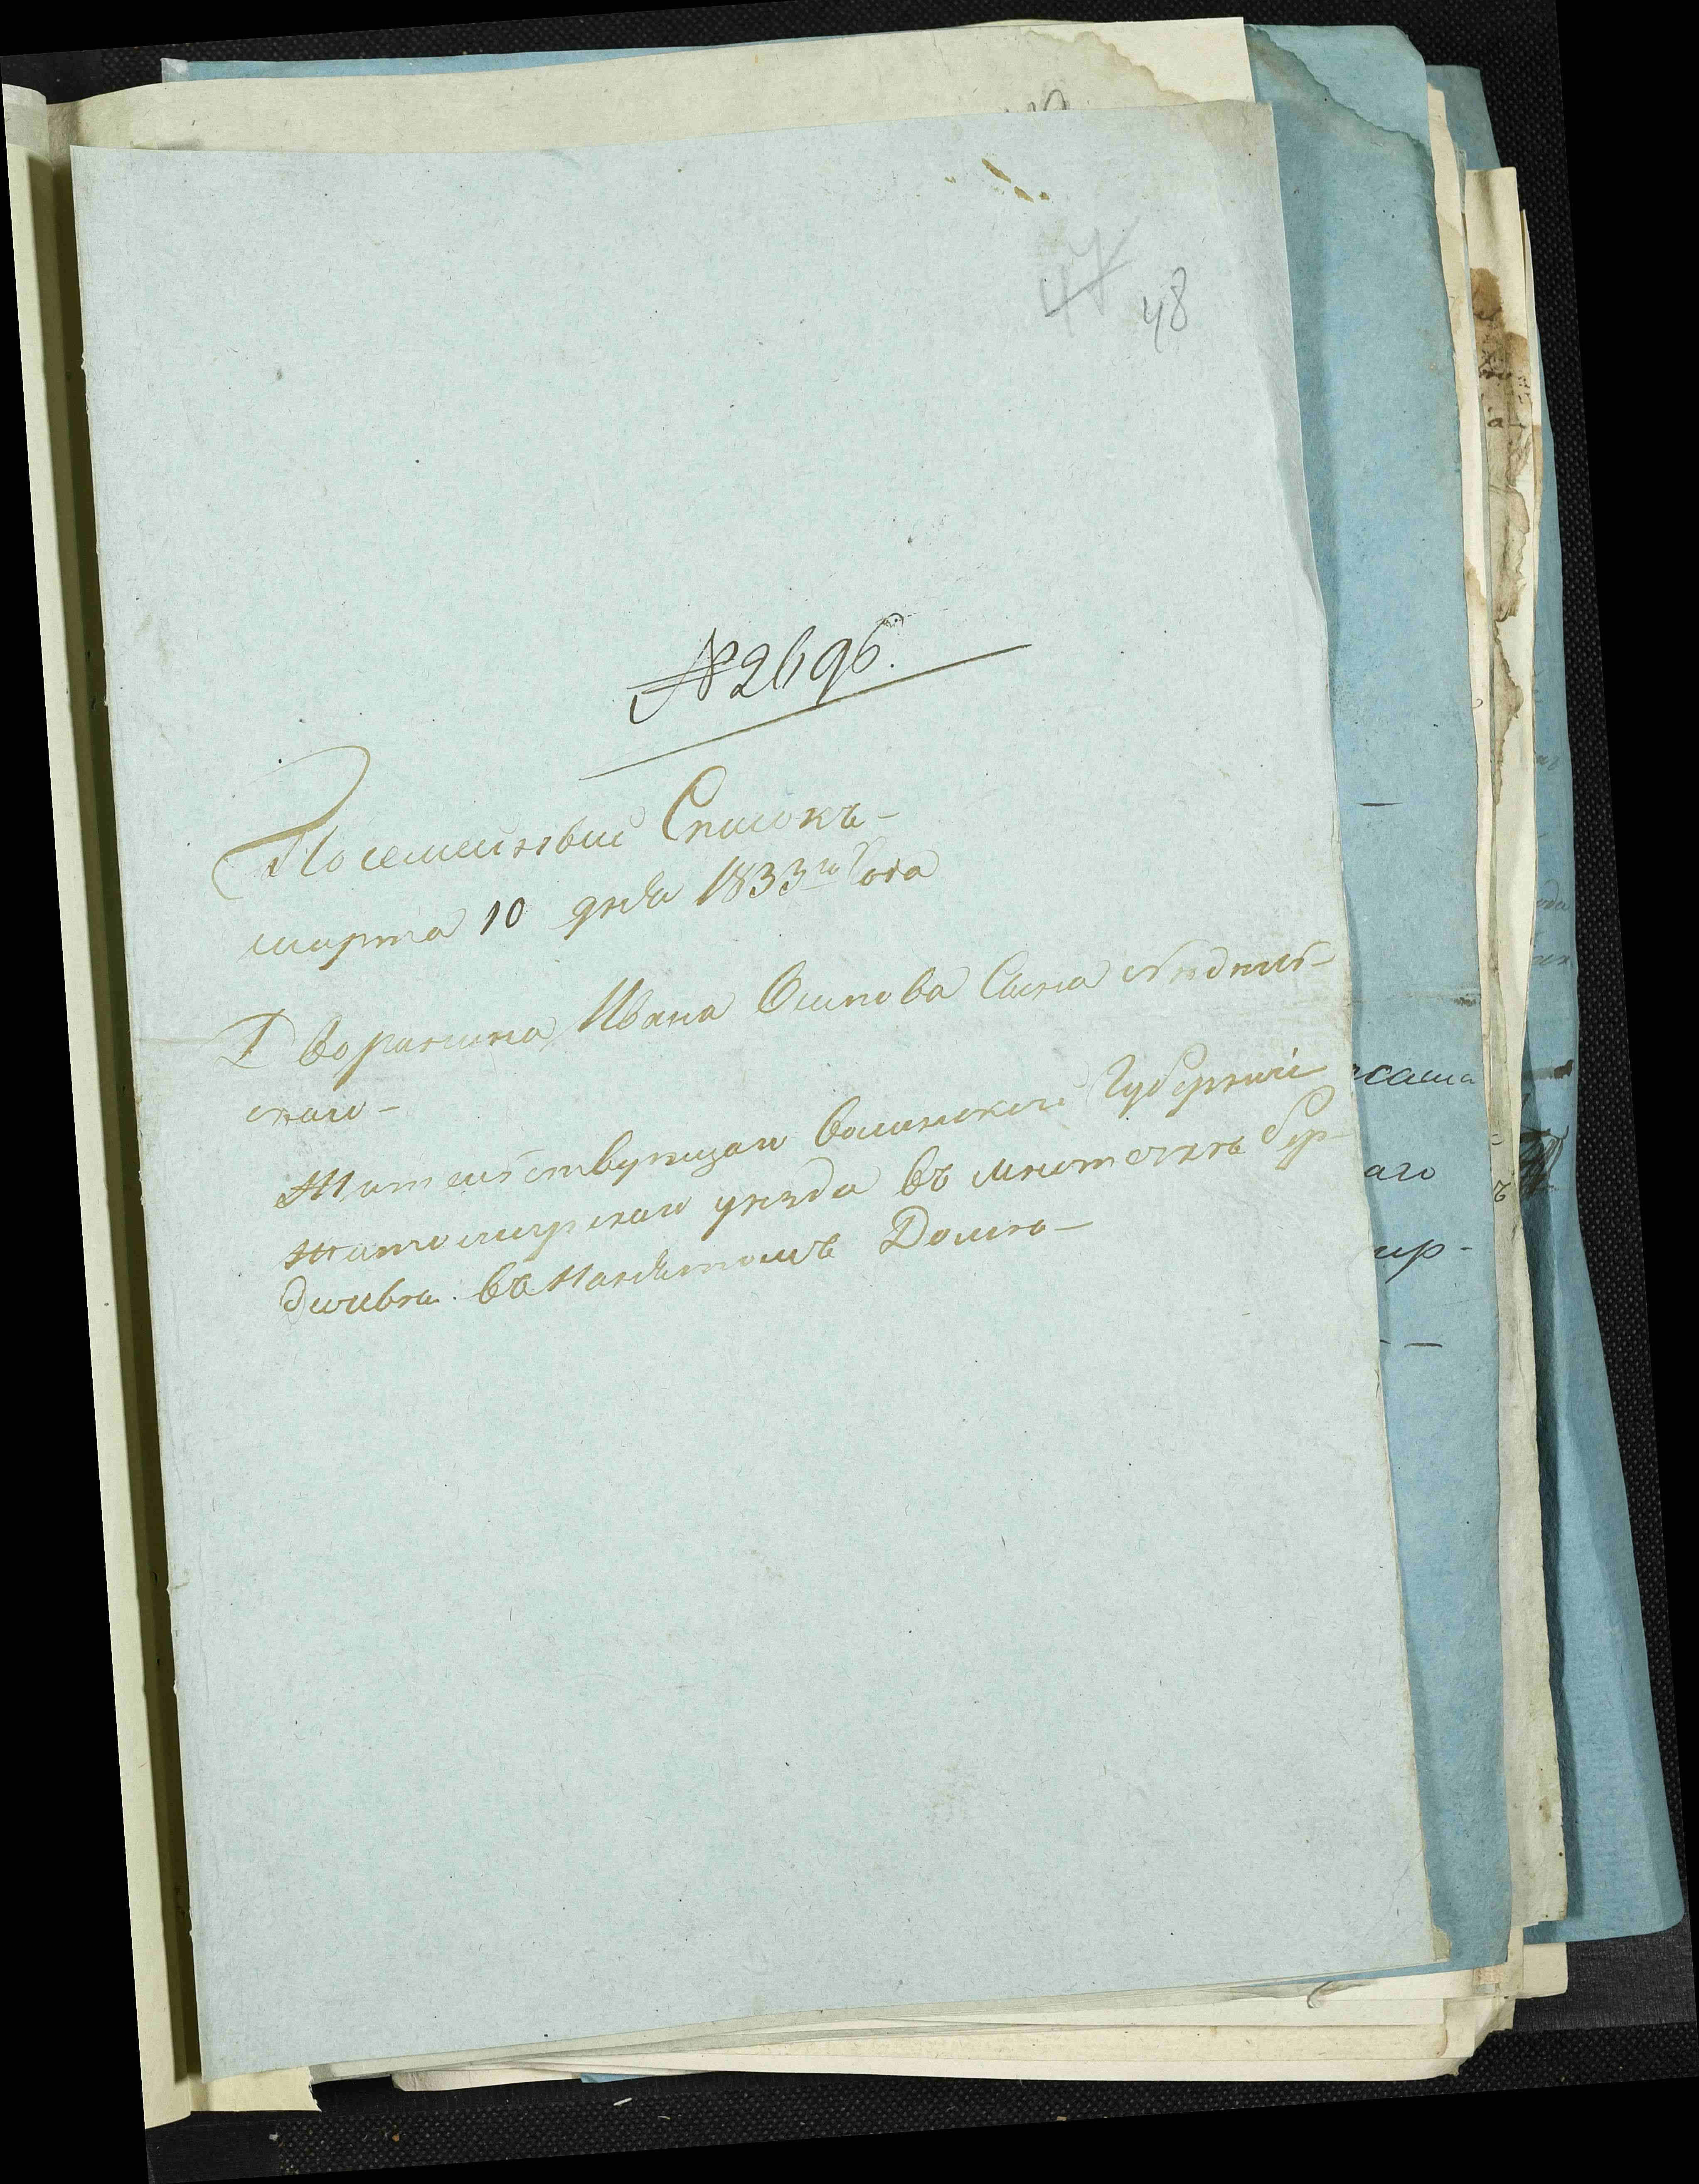 47 48
№ 2696.
Посемейный Списокъ-
марта 10 дня 1833го Года
Дворянина Ивана Осипова Сына
скаго-
Жительствующаго Волынской Губерній
житомирскаго уезда въ местечкѣ Бер-
дичевѣ въ Нанятомъ Доме-